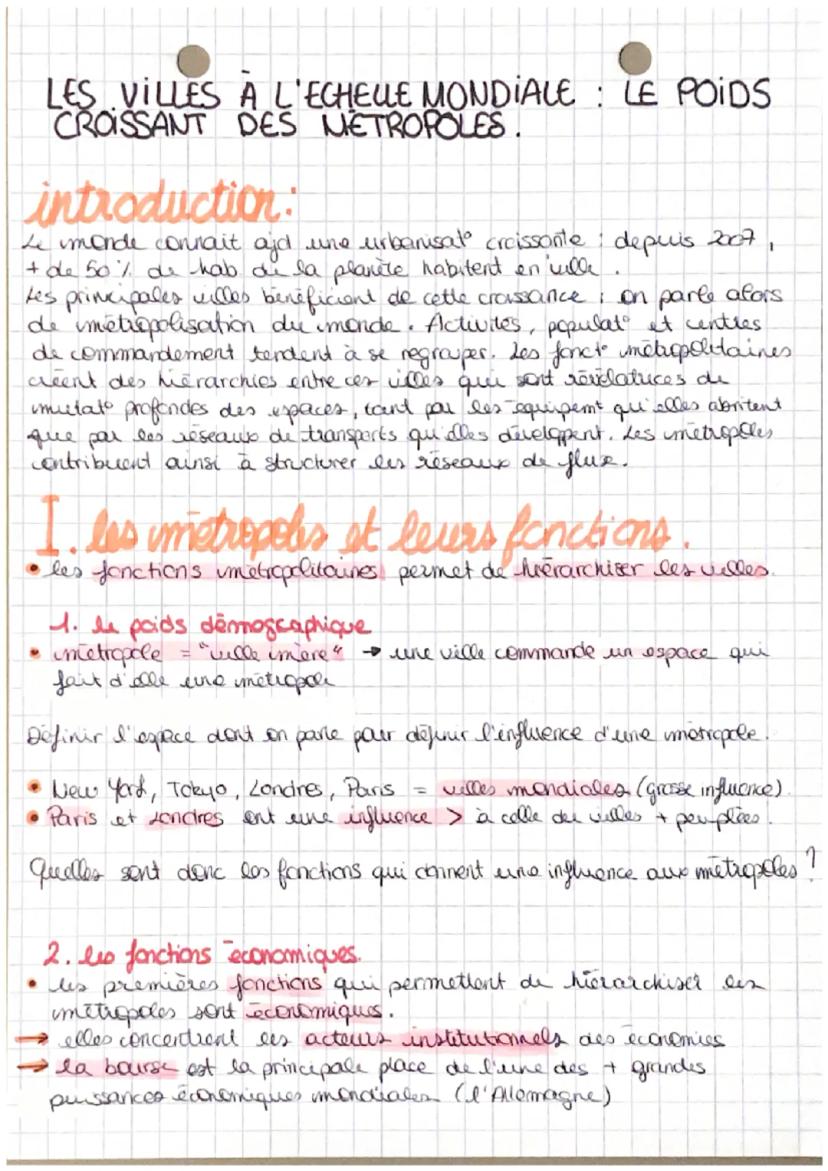 LES VILLES À L'ECHELLE MONDIALE : LE POIDS
CROISSANT DES MÉTROPOLES.
introduction:
Le monde connait ajd une urbanisat° croissante : depuis 2007,
+ de 50% de hab de la planète habitent en ville.
Les principales villes bénéficient de cette croissance ; on parle alors
de métropolisation du monde. Activités, populat° et centres
de commandement tendent à se regrouper. Les fonct° métropolitaines
créent des hiérarchies entre ces villes qui sont révélatrices de
mutat° profondes des espaces, tant par les équipemt qu'elles abritent
que par les réseaux de transports qu'elles développent. Les métropoles
contribuent ainsi à structurer les réseaux de flux.
I. les métropoles et leurs fonctions.
• les fonctions métropolitaines permet de hiérarchiser les villes.
1. le poids démographique
• métropole = "ville mère" → une ville commande un espace qui
fait d'elle une métropole
Définir l'espace dont on parle pour définir l'influence d'une métropole.
• New York, Tokyo, Londres, Paris = villes mondiales (grosse influence)
• Paris et Londres ont une influence > à celle des villes + peuplées.
Quelles sont donc les fonctions qui donnent une influence aux métropoles ?
2. les fonctions économiques.
• les premières fonctions qui permettent de hiérarchiser les
métropoles sont économiques.
→ elles concentrent les acteurs institutionnels des économies
→ la bourse est la principale place de l'une des + grandes
puissances économiques mondiales (l'Allemagne)